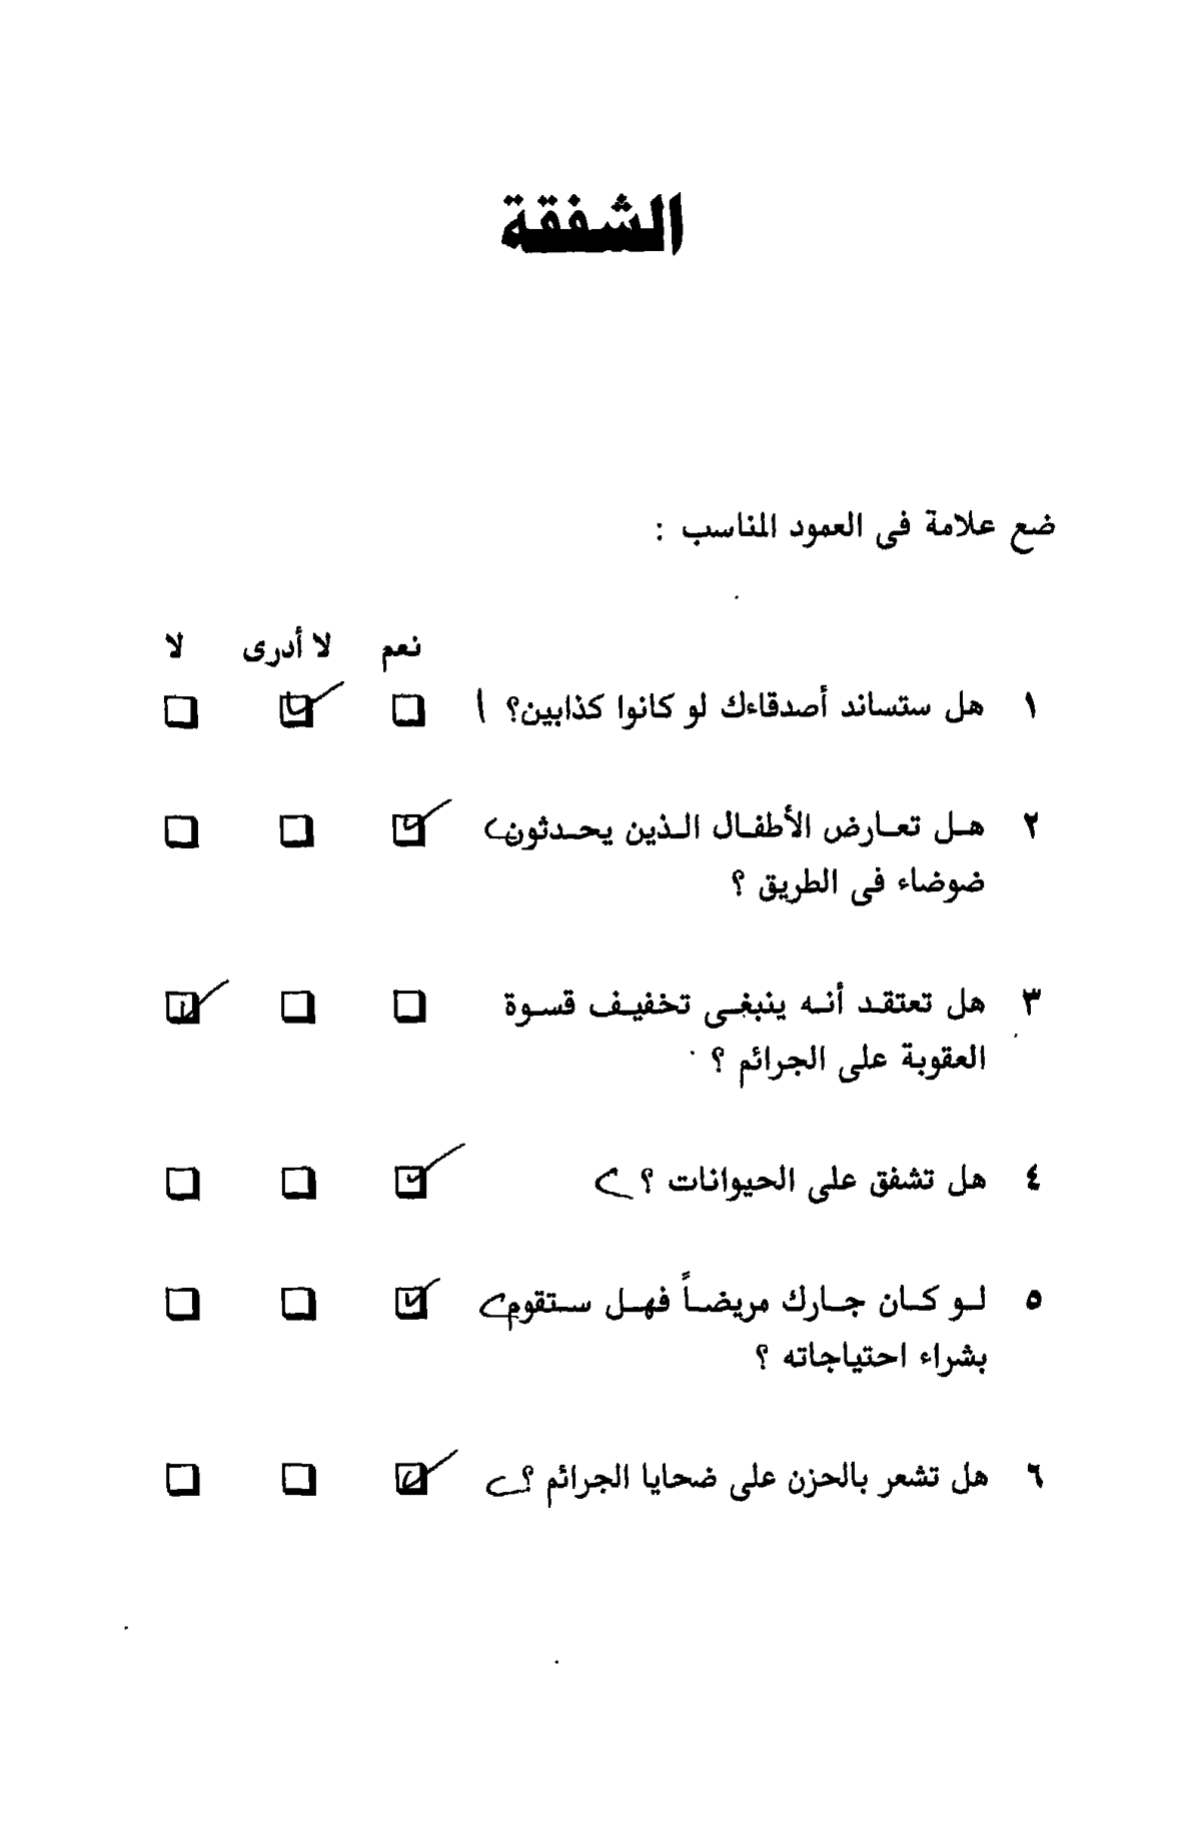 الشفقة
ضع علامة فى العمود المناسب :
نعم لا أدرى لا
١ هل ستساند أصدقاءك لو كانوا كذابين؟ ١
٢ هـل تعـارض الأطفـال الـذين يحـدثون
ضوضاء فى الطريق ؟
٣ هل تعتقـد أنـه ينبغـى تخفيـف قسـوة
العقوبة على الجرائم ؟
٤ هل تشفق على الحيوانات ؟
٥ لـو كـان جـارك مريضـاً فهـل سـتقوم
بشراء احتياجاته ؟
٦ هل تشعر بالحزن على ضحايا الجرائم ؟